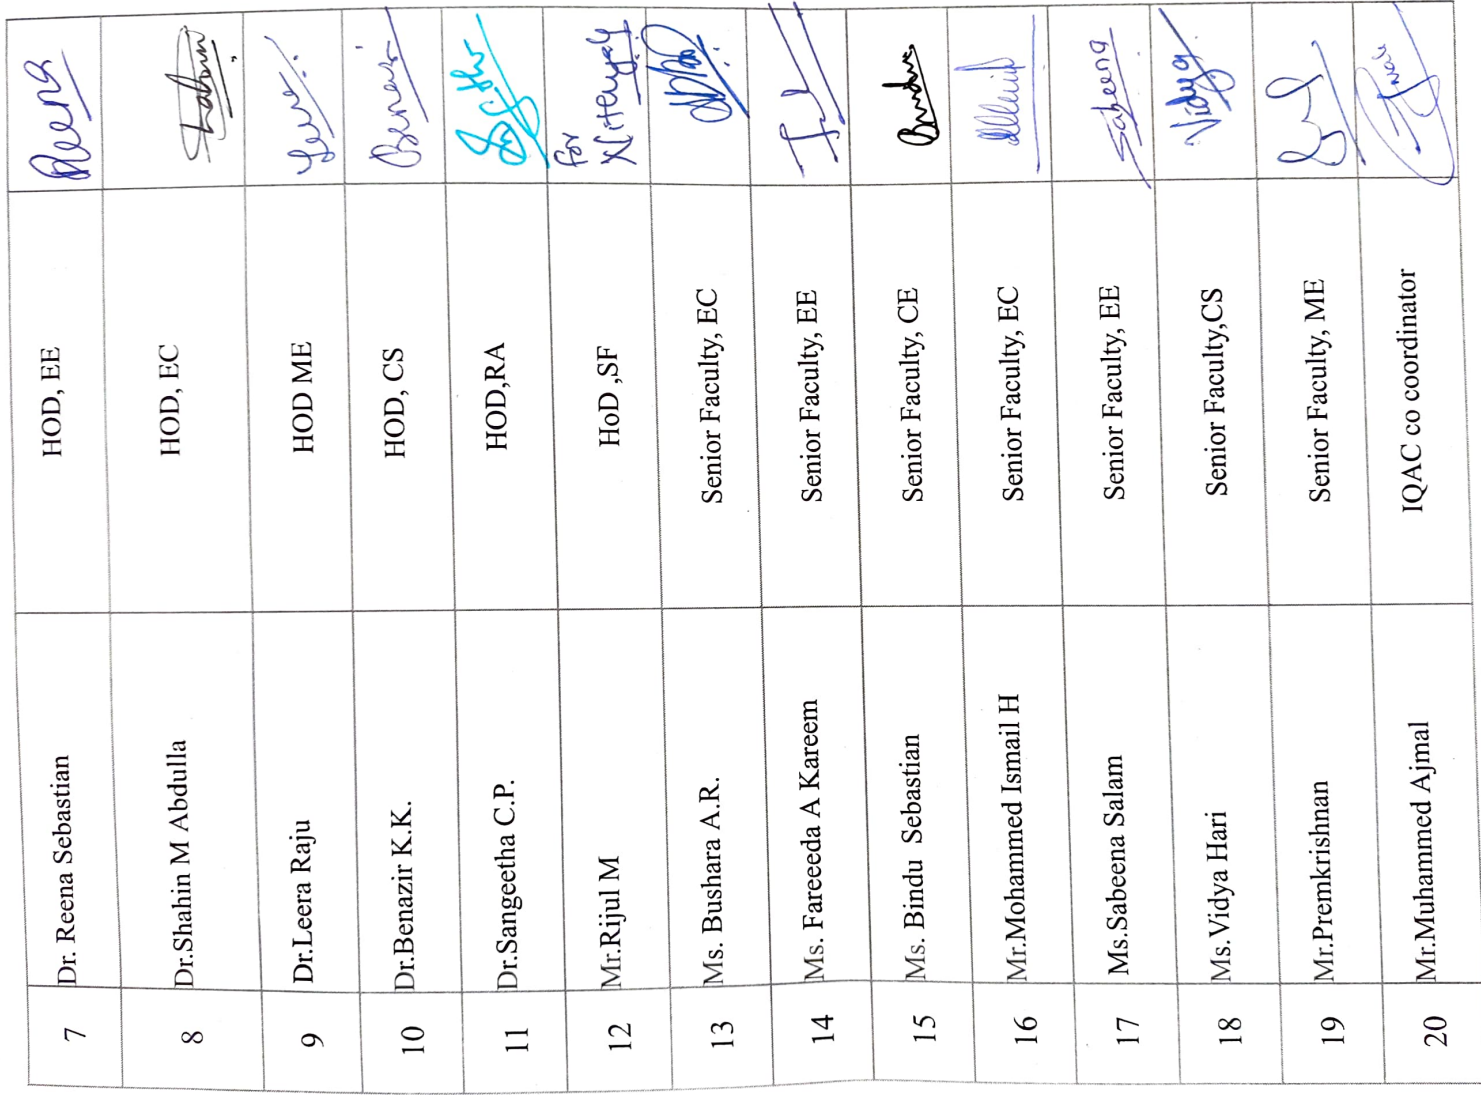 7 Dr. Reena Sebastian HOD, EE Reena
8 Dr.Shahin M Abdulla HOD, EC
9 Dr.Leera Raju HOD ME
10 Dr.Benazir K.K. HOD, CS
11 Dr.Sangeetha C.P. HOD,RA
12 Mr.Rijul M HoD ,SF for
13 Ms. Bushara A.R. Senior Faculty, EC
14 Ms. Fareeda A Kareem Senior Faculty, EE
15 Ms. Bindu Sebastian Senior Faculty, CE
16 Mr.Mohammed Ismail H Senior Faculty, EC
17 Ms.Sabeena Salam Senior Faculty, EE Sabeena
18 Ms.Vidya Hari Senior Faculty,CS Vidya
19 Mr.Premkrishnan Senior Faculty, ME
20 Mr.Muhammed Ajmal IQAC co coordinator